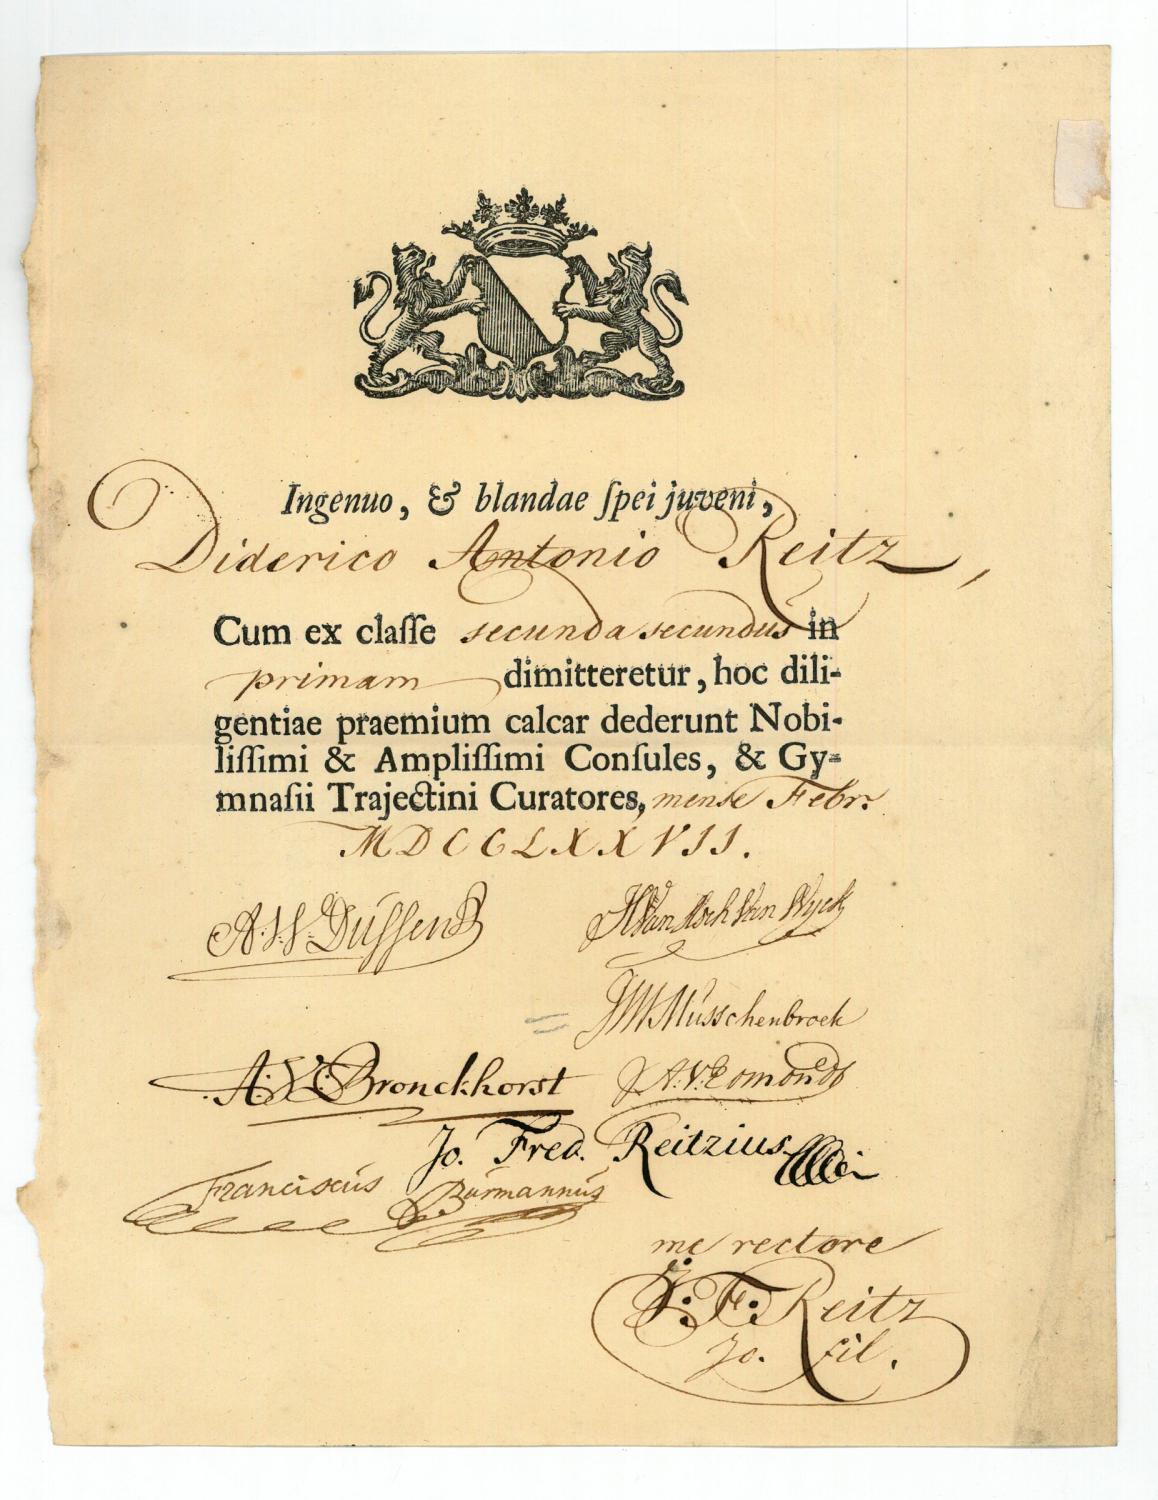 Ingenuo, & blandae ſpei juveni,
Diderico Antonio Reitz,
Cum ex claſſe secunda secundus in
primam dimitteretur, hoc dili-
gentiae praemium calcar dederunt Nobi-
liſſimi & Ampliſſimi Conſules, & Gy-
mnaſii Trajectini Curatores, mense Febr.
MDCCLXXVII.
Dussen
Van Wyck
Musschenbroek
A. V. Bronckhorst
A. V. Romondt
Jo. Fred. Reitzius
Franciscus Burmannus
me rectore
J. F. Reitz
Jo. fil.